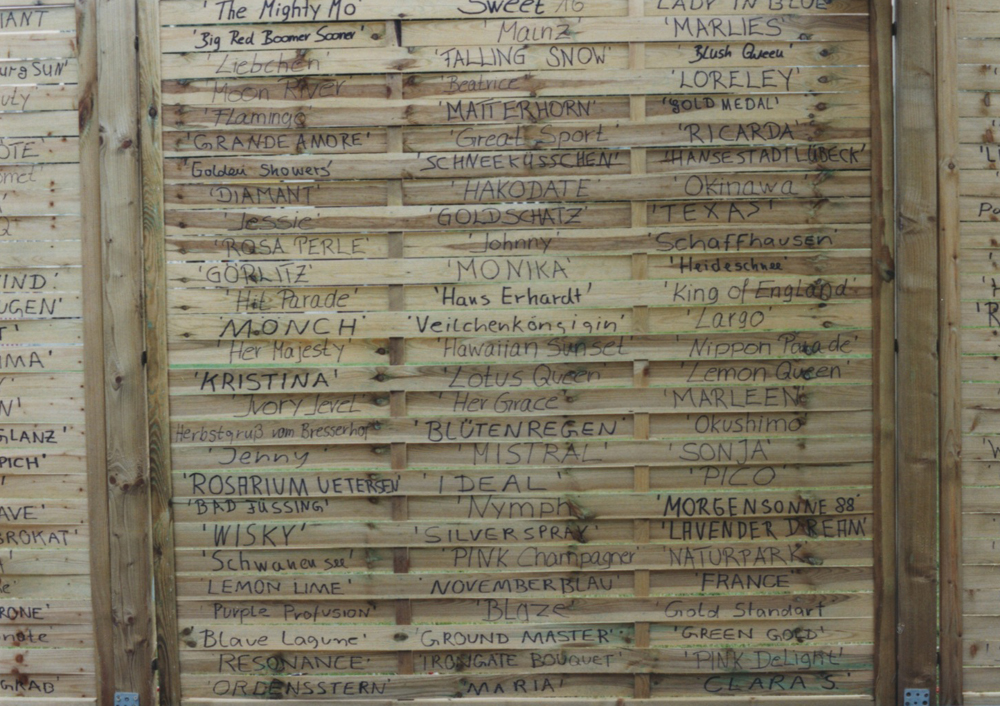 IANT' 'The Mighty Mo' 'Sweet 16' 'LADY IN BLUE'
'Big Red Boomer Sooner' 'Mainz' 'MARLIES'
SUN' 'Liebchen' 'FALLING SNOW' 'Blush Queen'
'Moon River' 'Beatrice' 'LORELEY'
'Flamingo' 'MATTERHORN' 'GOLD MEDAL'
'GRANDE AMORE' 'Great Sport' 'RICARDA'
'Golden Showers' 'SCHNEEKÜSSCHEN' 'HANSESTADT LÜBECK'
'DIAMANT' 'HAKODATE' 'Okinawa'
'Jessie' 'GOLDSCHATZ' 'TEXAS'
'ROSA PERLE' 'Johnny' 'Schaffhausen'
IND' 'GÖRLITZ' 'MONIKA' 'Heideschnee'
UGEN' 'Hit Parade' 'Hans Erhardt' 'King of England'
'MÖNCH' 'Veilchenkönsigin' 'Largo'
IMA' 'Her Majesty' 'Hawaiian Sunset' 'Nippon Parade'
'KRISTINA' 'Lotus Queen' 'Lemon Queen'
N' 'Ivory Jevel' 'Her Grace' 'MARLEEN'
GLANZ' 'Herbstgruß vom Bresserhof' 'BLÜTENREGEN' 'Okushimo'
PICH' 'Jenny' 'MISTRAL' 'SONJA'
'ROSARIUM UETERSEN' 'IDEAL' 'PICO'
AVE' 'BAD FÜSSING' 'Nymph' 'MORGENSONNE 88'
BROKAT' 'WISKY' 'SILVERSPRAY' 'LAVENDER DREAM'
'Schwanensee' 'PINK Champagner' 'NATURPARK'
'LEMON LIME' 'NOVEMBERBLAU' 'FRANCE'
RONE' 'Purple Profusion' 'Blaze' 'Gold Standart'
'Blaue Lagune' 'GROUND MASTER' 'GREEN GOLD'
'RESONANCE' 'IRONGATE BOUQUET' 'PINK DeLight'
GRAD' 'ORDENSSTERN' 'MARIA' 'CLARA S.'